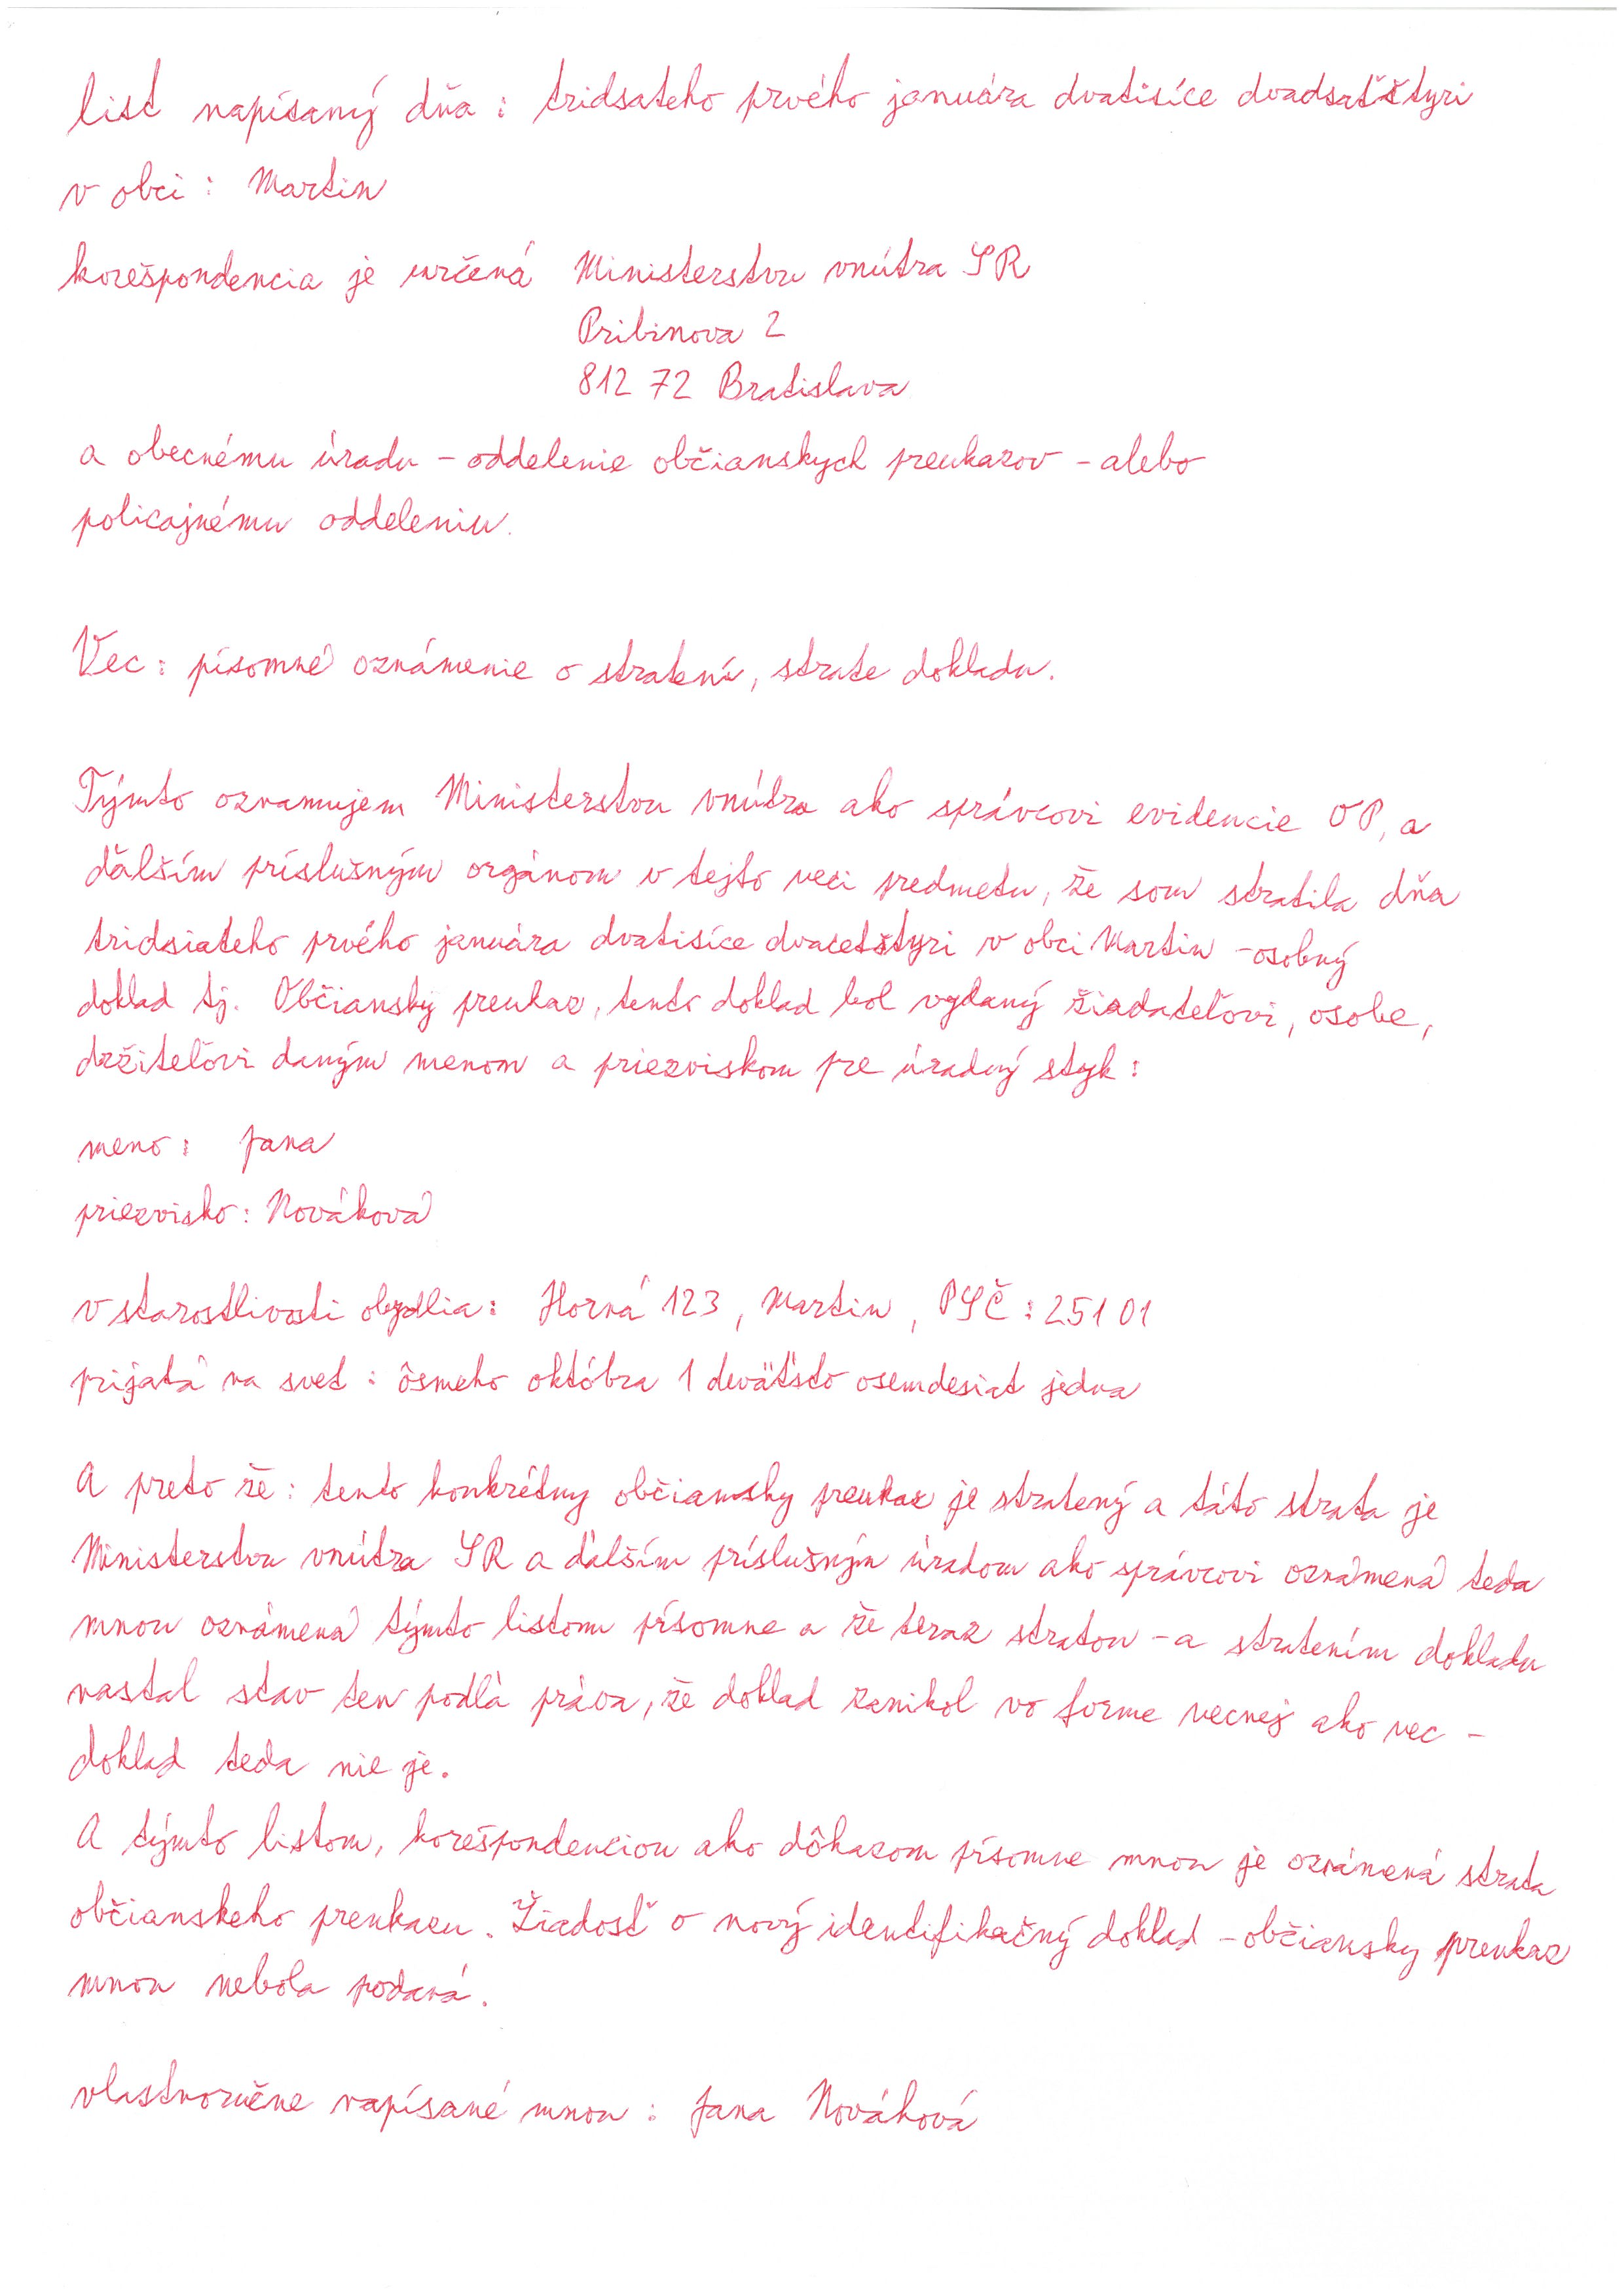 list napísaný dňa : tridsateho prvého januára dvatisíce dvadsaťštyri
v obci : Martin
korešpondencia je určená Ministerstvu vnútra SR
Pribinova 2
812 72 Bratislava
a obecnému úradu - oddelenie občianskych preukazov - alebo
policajnému oddeleniu.
Vec : písomné oznámenie o stratení, strate dokladu.
Týmto oznamujem Ministerstvu vnútra ako správcovi evidencie OP, a
ďalším príslušným orgánom v tejto veci predmetu, že som stratila dňa
tridsiateho prvého januára dvatisíce dvacetštyri v obci Martin - osobný
doklad tj. Občiansky preukaz, tento doklad bol vydaný žiadateľovi, osobe,
držiteľovi daným menom a priezviskom pre úradný styk :
meno : Jana
priezvisko : Nováková
v starostlivosti obydlia : Horná 123, Martin, PSČ : 251 01
prijatá na svet : ôsmeho októbra 1 deväťsto osemdesiat jedna
A preto že : tento konkrétny občiansky preukaz je stratený a táto strata je
Ministerstvu vnútra SR a ďalším príslušným úradom ako správcovi oznámená teda
mnou oznámená týmto listom písomne a že teraz stratou - a stratením dokladu
nastal stav ten podľa práva, že doklad zanikol vo forme vecnej ako vec -
doklad teda nie je.
A týmto listom, korešpondenciou ako dôkazom písomne mnou je oznámená strata
občianskeho preukazu. Žiadosť o nový identifikačný doklad - občiansky preukaz
mnou nebola podaná.
vlastnoručne napísané mnou : Jana Nováková